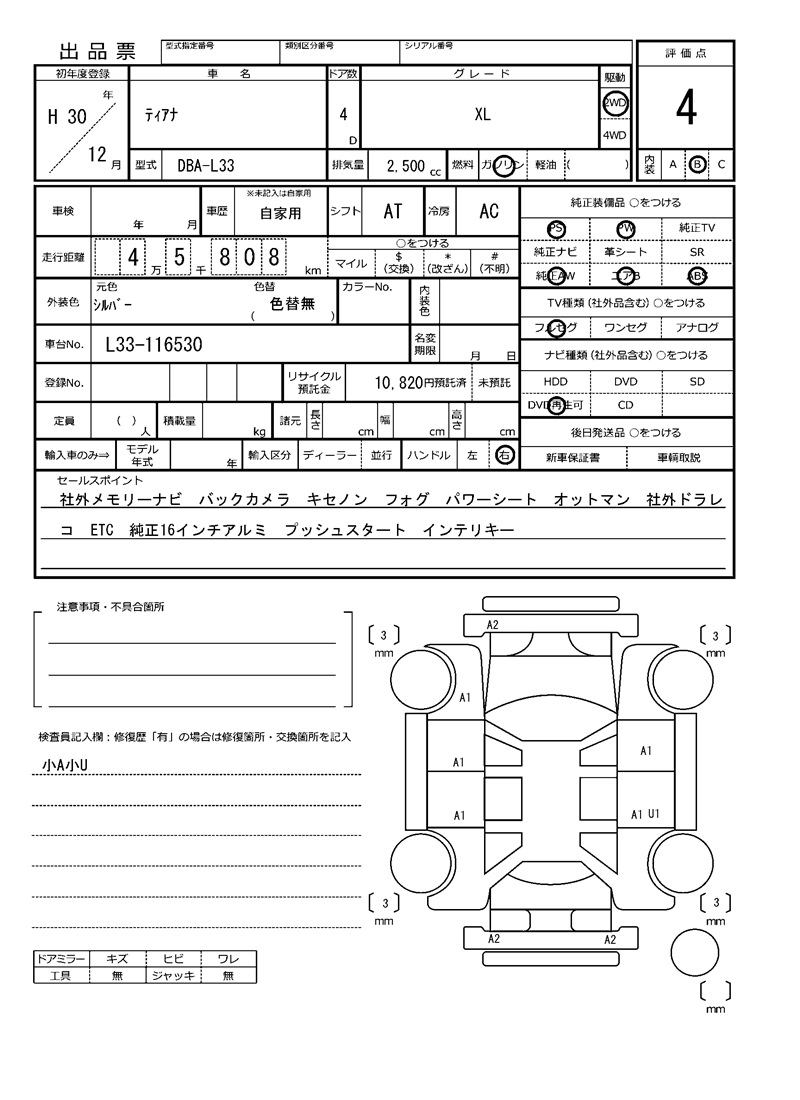 出品票
型式指定番号 類別区分番号 シリアル番号
評価点
初年度登録 車名 ドア数 グレード 駆動
H 30 年 ティアナ 4 D XL 2WD 4
12 月 4WD
型式 DBA-L33 排気量 2,500 cc 燃料 ガソリン 軽油 ( ) 内装 A B C
車検 年 月 車歴 ※未記入は自家用 自家用 シフト AT 冷房 AC
純正装備品 ○をつける
PS PW 純正TV
純正ナビ 革シート SR
純正AW エアB ABS
走行距離 4 万 5 千 8 0 8 km
○をつける
マイル $ (交換) * (改ざん) # (不明)
外装色 元色 シルバー 色替 色替無 ( ) カラーNo. 内装色
TV種類 (社外品含む) ○をつける
フルセグ ワンセグ アナログ
車台No. L33-116530 名変期限 月 日
ナビ種類 (社外品含む) ○をつける
HDD DVD SD
DVD再生可 CD
登録No. リサイクル預託金 10,820円預託済 未預託
定員 ( ) 人 積載量 kg 諸元 長さ cm 幅 cm 高さ cm
後日発送品 ○をつける
新車保証書 車輌取説
輸入車のみ⇒ モデル年式 年 輸入区分 ディーラー 並行 ハンドル 左 右
セールスポイント
社外メモリーナビ バックカメラ キセノン フォグ パワーシート オットマン 社外ドラレ
コ ETC 純正16インチアルミ プッシュスタート インテリキー
注意事項・不具合箇所
検査員記入欄：修復歴「有」の場合は修復箇所・交換箇所を記入
小A小U
A2
3 mm
3 mm
A1
A1
A1
A1
A1 U1
3 mm
3 mm
A2 A2
mm
ドアミラー キズ ヒビ ワレ
工具 無 ジャッキ 無